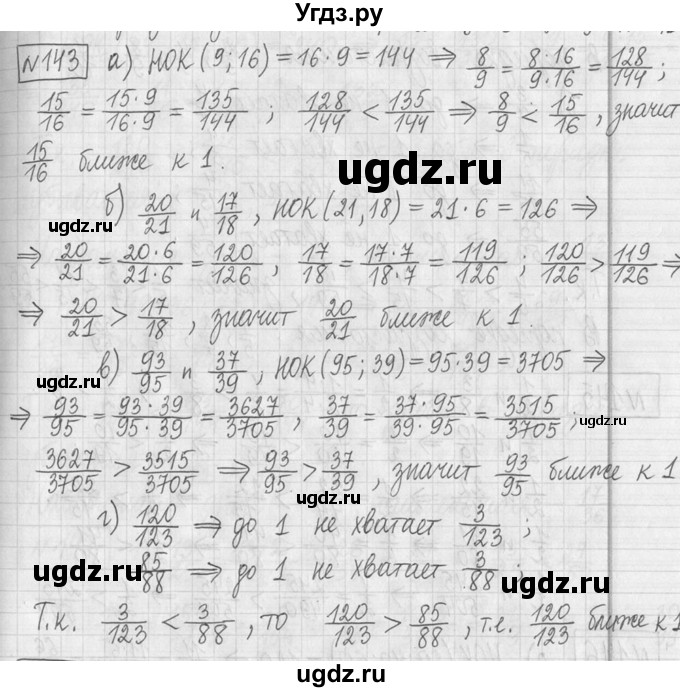 Угдз.ру
№143 а) НОК(9;16)=16·9=144 ⇒ 8/9 = 8·16/9·16 = 128/144;
15/16 = 15·9/16·9 = 135/144; 128/144 < 135/144 ⇒ 8/9 < 15/16, значит
15/16 ближе к 1.
ugdz.ru
б) 20/21 и 17/18, НОК(21,18)=21·6=126 ⇒
ugdz.ru
ugdz.ru
⇒ 20/21 = 20·6/21·6 = 120/126, 17/18 = 17·7/18·7 = 119/126; 120/126 > 119/126 ⇒
⇒ 20/21 > 17/18, значит 20/21 ближе к 1.
ugdz.ru
в) 93/95 и 37/39, НОК(95;39)=95·39=3705 ⇒
ugdz.ru
⇒ 93/95 = 93·39/95·39 = 3627/3705, 37/39 = 37·95/39·95 = 3515/3705;
ugdz.ru
3627/3705 > 3515/3705 ⇒ 93/95 > 37/39, значит 93/95 ближе к 1
ugdz.ru
г) 120/123 ⇒ до 1 не хватает 3/123;
ugdz.ru
85/88 ⇒ до 1 не хватает 3/88;
ugdz.ru
ugdz.ru
Т.к. 3/123 < 3/88, то 120/123 > 85/88, т.е. 120/123 ближе к 1
ugdz.ru
ugdz.ru